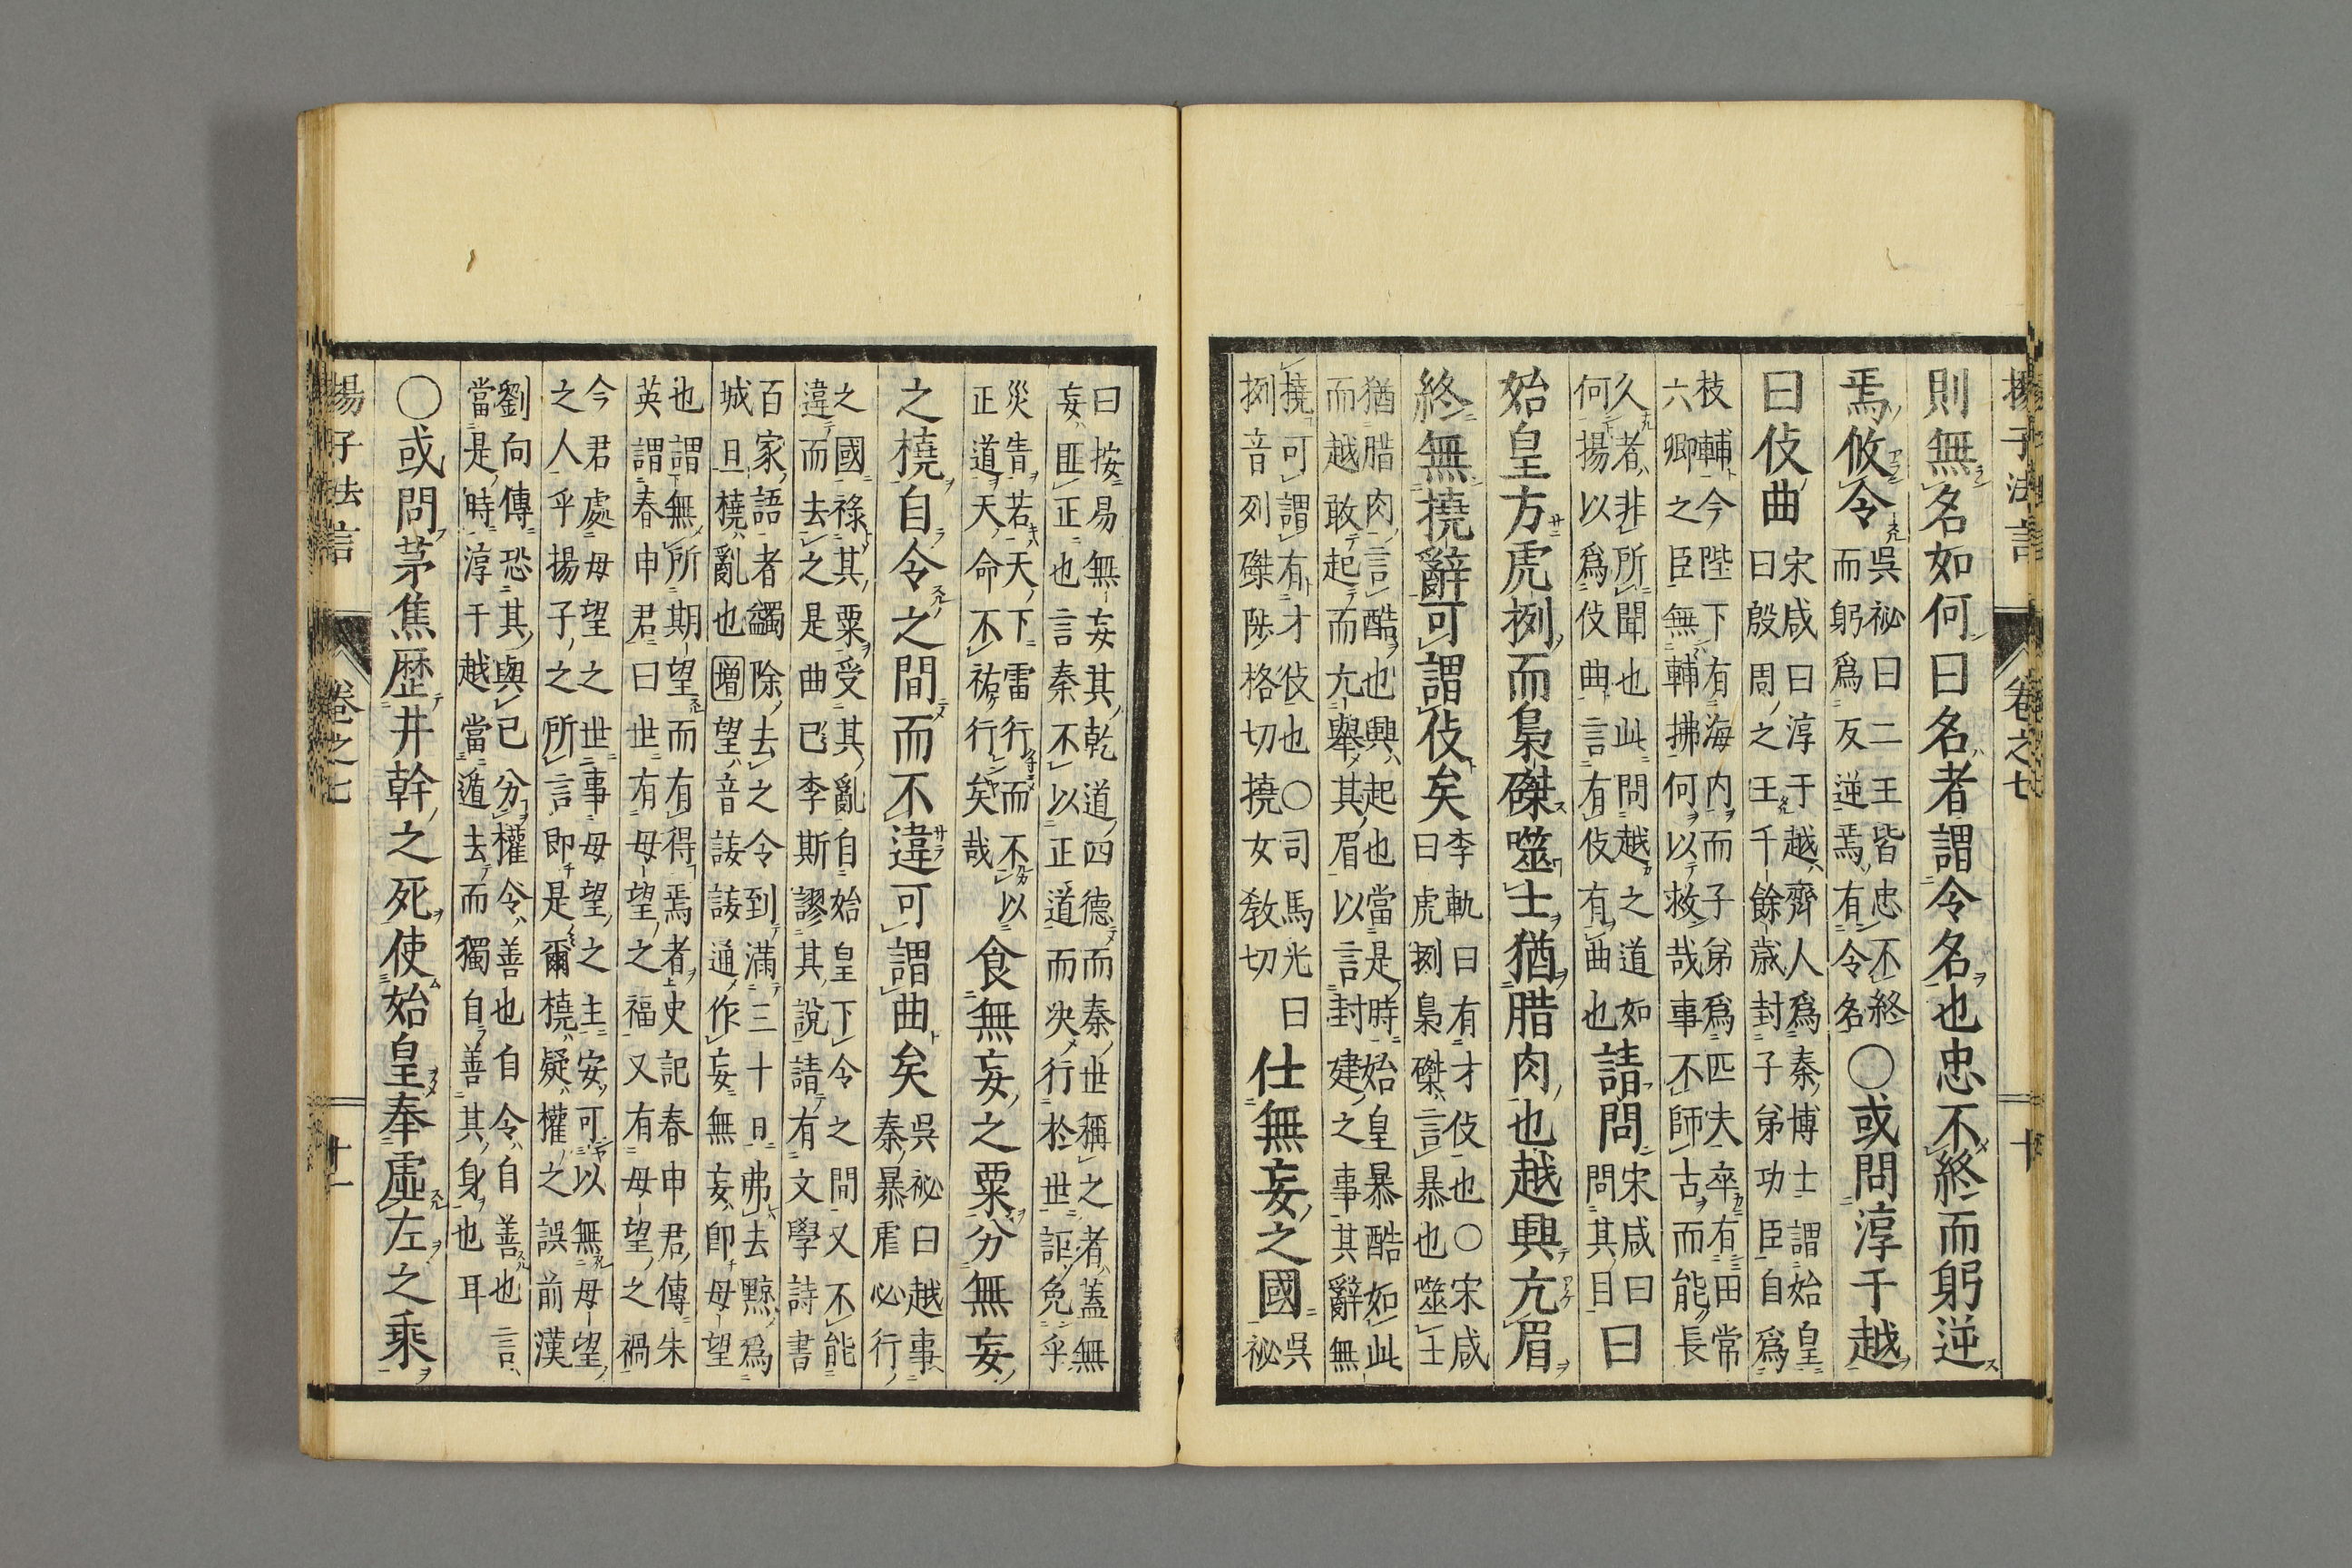 揚子法言 卷之七 十
則無名如何曰名者謂令名也忠不終而躬逆
焉攸令
吳祕曰二王皆忠不終
而躬爲反逆焉有令名
○或問淳于越
曰伎曲
宋咸曰淳于越齊人爲秦博士謂始皇
曰殷周之王千餘歲封子弟功臣自爲
枝輔今陛下有海内而子弟爲匹夫卒有田常
六卿之臣無輔拂何以救哉事不師古而能長
久者非所聞也此問越之道如
何揚以爲伎曲言有伎有曲也
請問
宋咸曰
問其目
曰
始皇方虎挒而梟磔噬士猶腊肉也越興亢眉
終無撓辭可謂伎矣
李軌曰有才伎也○宋咸
曰虎挒梟磔言暴也噬士
猶腊肉言酷也興起也當是時始皇暴酷如此
而越敢起而亢舉其眉以言封建之事其辭無
撓可謂有才伎也○司馬光曰
挒音列磔陟格切撓女敎切
仕無妄之國
吳
祕
曰按易無妄其乾道四德而秦世稱之者蓋無
妄匪正也言秦不以正道而决行於世詎免乎
災眚若天下雷行而不以
正道天命不祐行矣哉
食無妄之粟分無妄
之橈自令之間而不違可謂曲矣
吳祕曰越事
秦暴虐必行
之國祿其粟受其亂自始皇下令之間又不能
違而去之是曲已李斯謬其說請有文學詩書
百家語者蠲除去之令到滿三十日弗去黥爲
城旦橈亂也增望音通作妄無妄即毋望
也謂無所期望而有得焉者史記春申君傳朱
英謂春申君曰世有毋望之福又有毋望之禍
今君處毋望之世事毋望之主安可以無毋望
之人乎揚子之所言即是爾橈疑權之誤前漢
劉向傳恐其與己分權令善也自令自善也言
當是時淳于越當遁去而獨自善其身也耳
○或問茅焦歷井幹之死使始皇奉虛左之乘
揚子法言 卷之七 十一